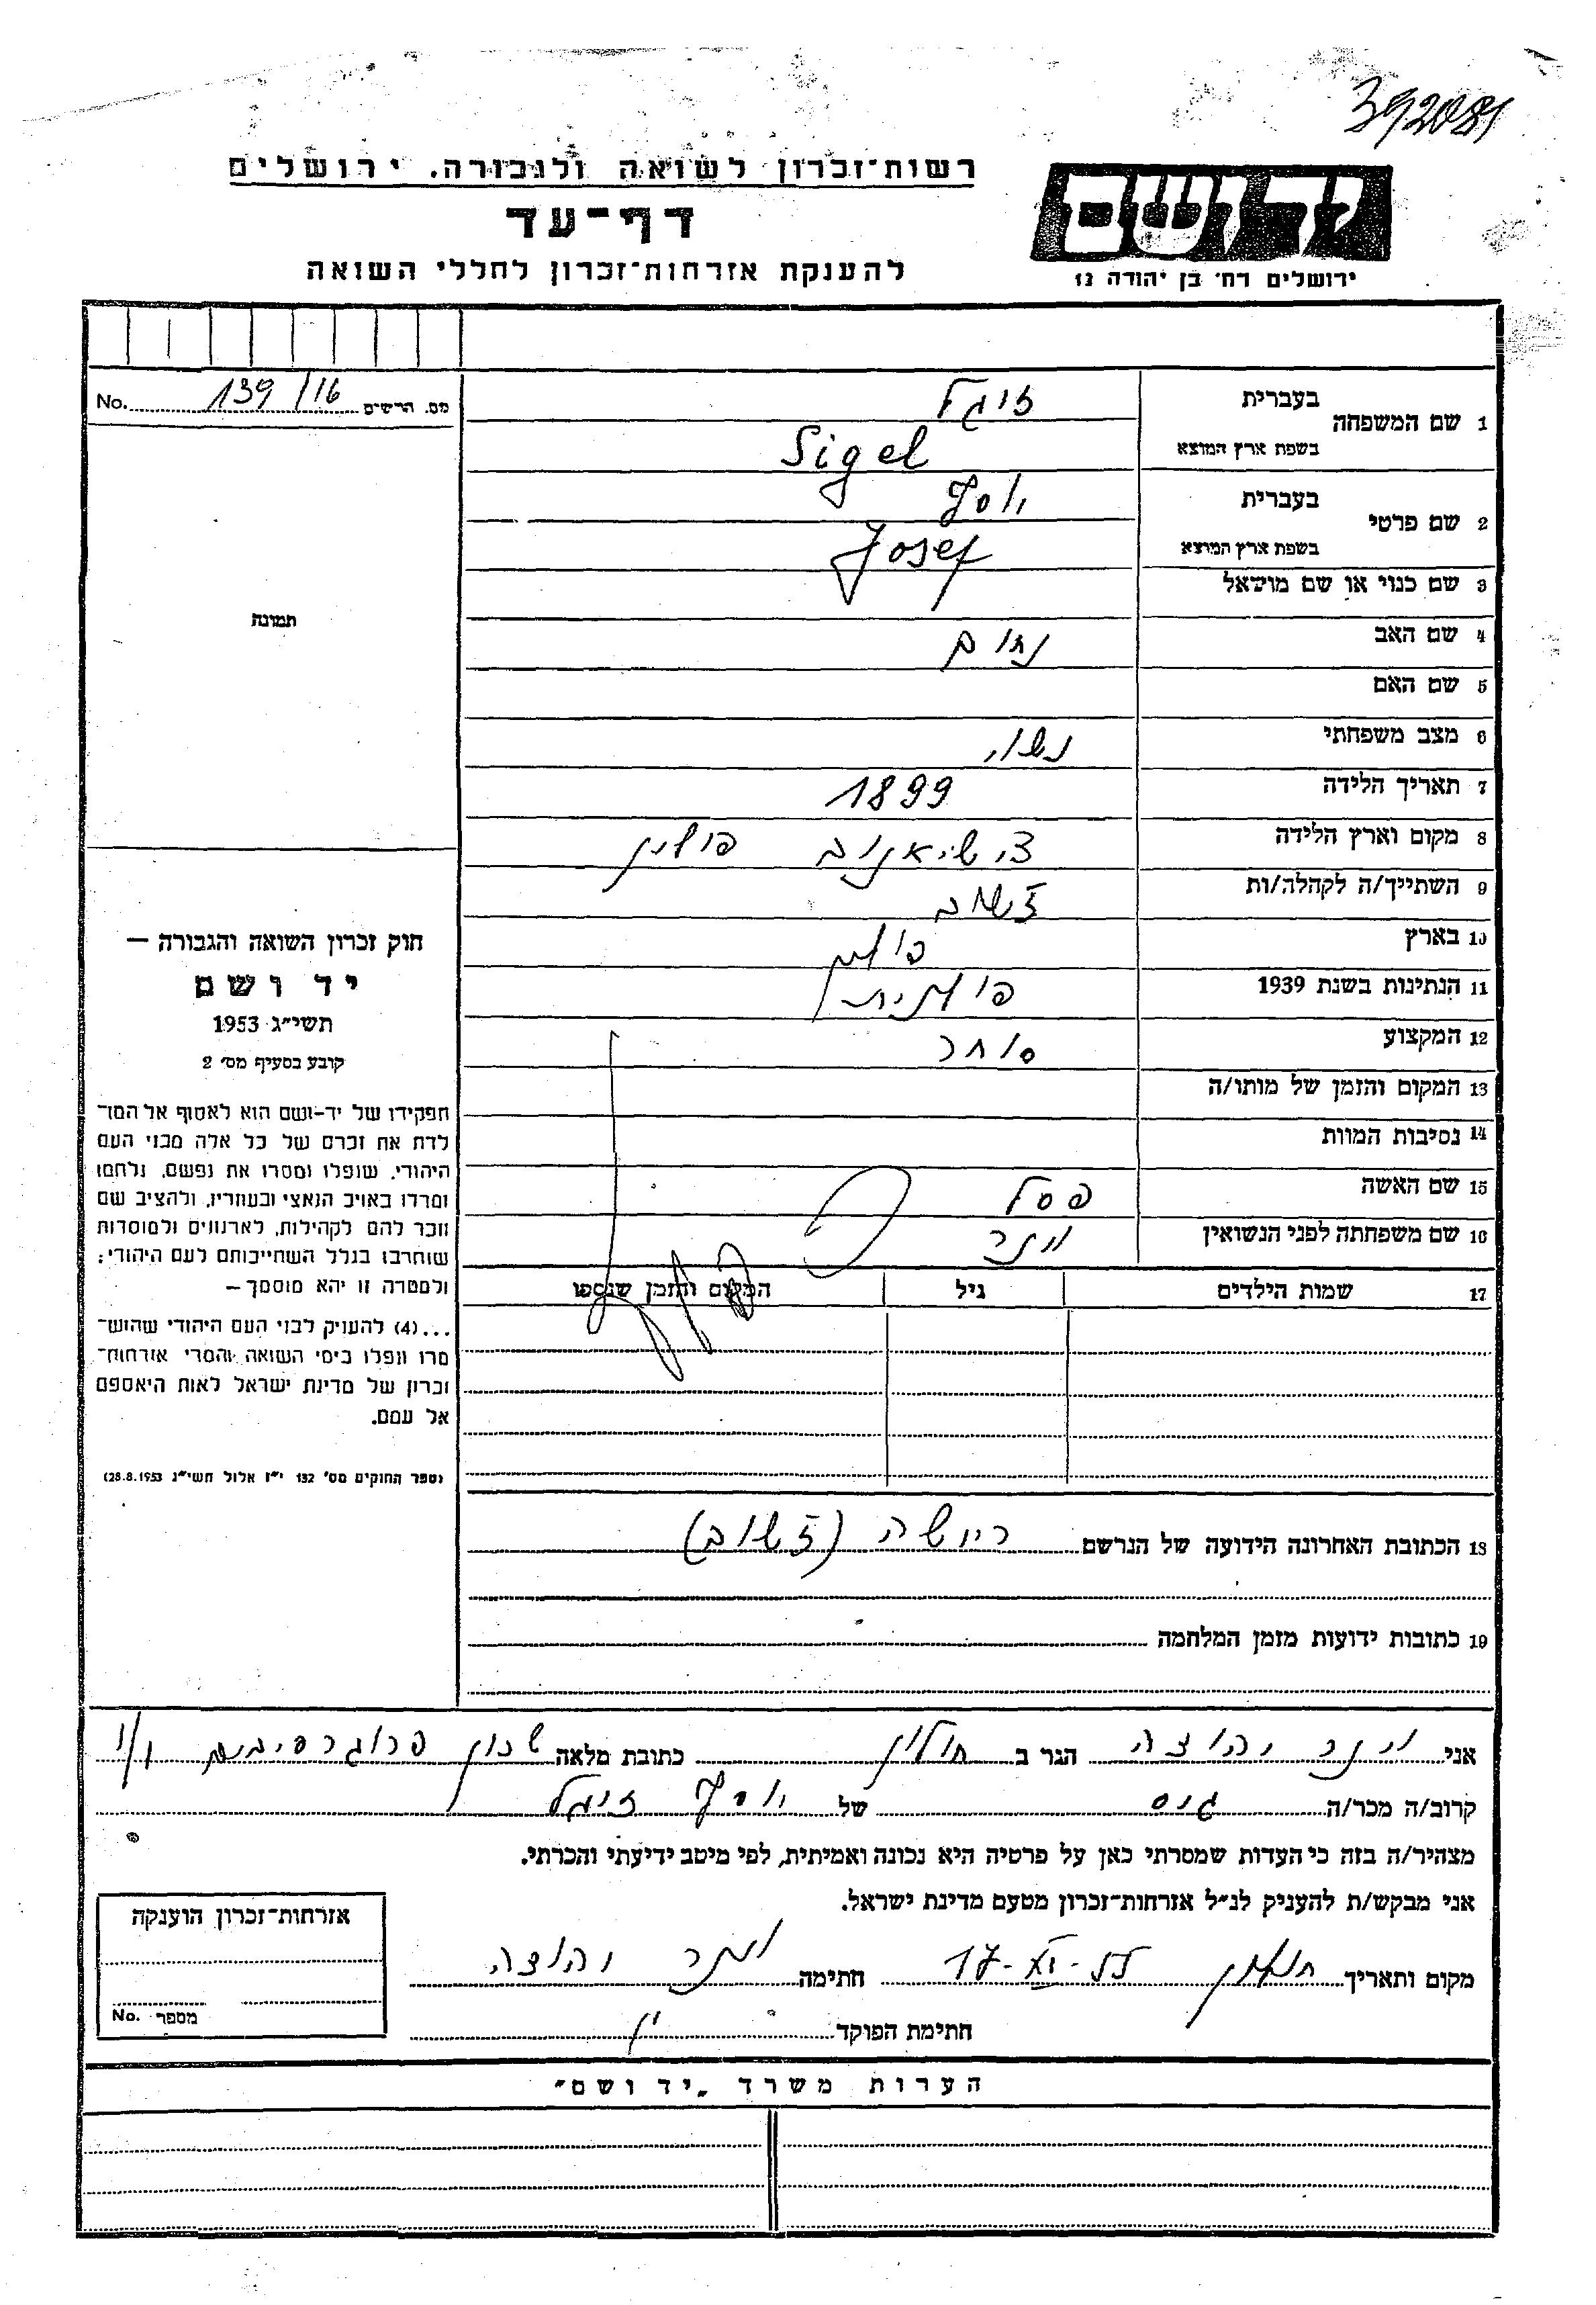 392081
רשות־זכרון לשואה ולגבורה. ירושלים
יד ושם
דף־עד
ירושלים רח׳ בן יהודה 12
להענקת אזרחות־זכרון לחללי השואה
מס. הרשים 139/16 No.
1 שם המשפחה בעברית זיגל
בשפת ארץ המוצא Sigel
2 שם פרטי בעברית יוסף
בשפת ארץ המוצא Josef
3 שם כנוי או שם מושאל
4 שם האב נחום
5 שם האם
6 מצב משפחתי נשוי
7 תאריך הלידה 1899
8 מקום וארץ הלידה פולין
9 השתייך/ה לקהלה/ות ז׳שוב
10 בארץ פולין
11 הנתינות בשנת 1939 פולנית
12 המקצוע סוחר
13 המקום והזמן של מותו/ה
14 נסיבות המוות
15 שם האשה פסל
16 שם משפחתה לפני הנשואין וינר
17 שמות הילדים גיל המקום והזמן שנספו
תמונה
חוק זכרון השואה והגבורה —
יד ושם
תשי״ג 1953
קובע בסעיף מס׳ 2
תפקידו של יד-ושם הוא לאסוף אל המו־
לדת את זכרם של כל אלה מבני העם
היהודי, שנפלו ומסרו את נפשם, נלחמו
ומרדו באויב הנאצי ובעוזריו, ולהציב שם
וזכר להם לקהילות, לארגונים ולמוסדות
שנחרבו בגלל השתייכותם לעם היהודי;
ולמטרה זו יהא מוסמך —
...(4) להעניק לבני העם היהודי שהוש־
מדו ונפלו בימי השואה והמרי אזרחות־
זכרון של מדינת ישראל לאות היאספם
אל עמם.
(ספר החוקים מס׳ 132 י״ז אלול תשי״ג 28.8.1953)
18 הכתובת האחרונה הידועה של הנרשם ריישה (ז׳שוב)
19 כתובות ידועות מזמן המלחמה
אני וינר יהודה הגר ב חולון כתובת מלאה שכון פרוגרסיבים
קרוב/ה מכר/ה גיס של יוסף זיגל
מצהיר/ה בזה כי העדות שמסרתי כאן על פרטיה היא נכונה ואמיתית, לפי מיטב ידיעתי והכרתי.
אני מבקש/ת להעניק לנ״ל אזרחות־זכרון מטעם מדינת ישראל.
מקום ותאריך חולון 17-XI-55 חתימה וינר יהודה
חתימת הפוקד
אזרחות־זכרון הוענקה
מספר No.
הערות משרד „יד ושם״